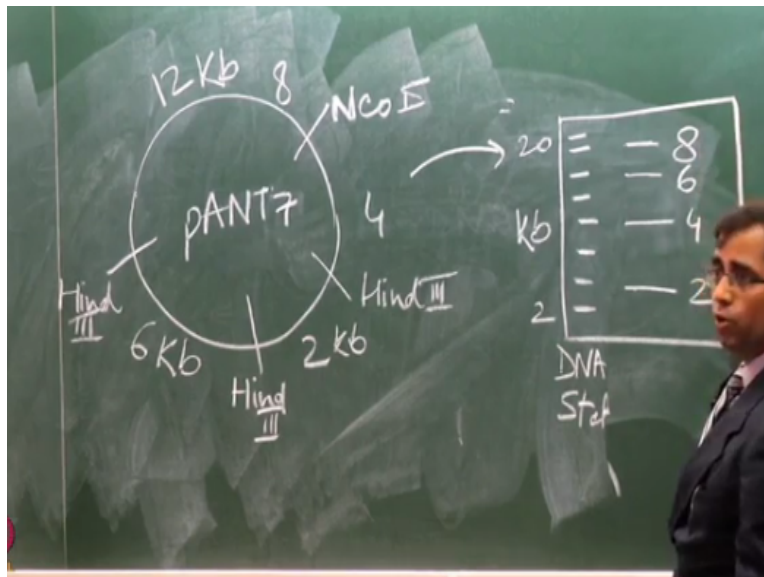 12 Kb 8
NcoI
pANT7
4
Hind III
Hind
III
6 Kb
2 kb
Hind
III
20
Kb
2
8
6
4
2
DNA
Std